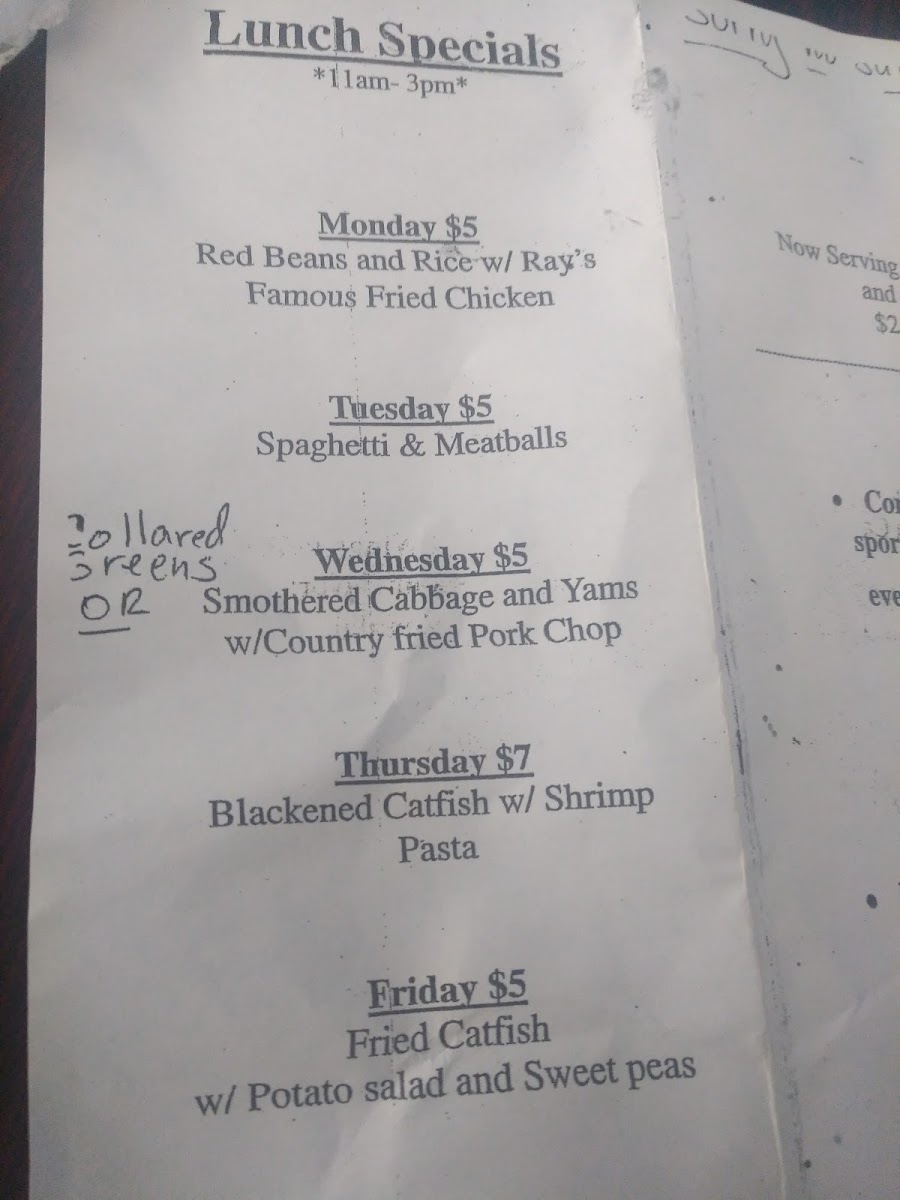 Lunch Specials
*11am- 3pm*
Monday $5
Red Beans and Rice w/ Ray's
Famous Fried Chicken
Tuesday $5
Spaghetti & Meatballs
Collared
Greens
OR
Wednesday $5
Smothered Cabbage and Yams
w/Country fried Pork Chop
Thursday $7
Blackened Catfish w/ Shrimp
Pasta
Friday $5
Fried Catfish
w/ Potato salad and Sweet peas
Now Serving
and
$2